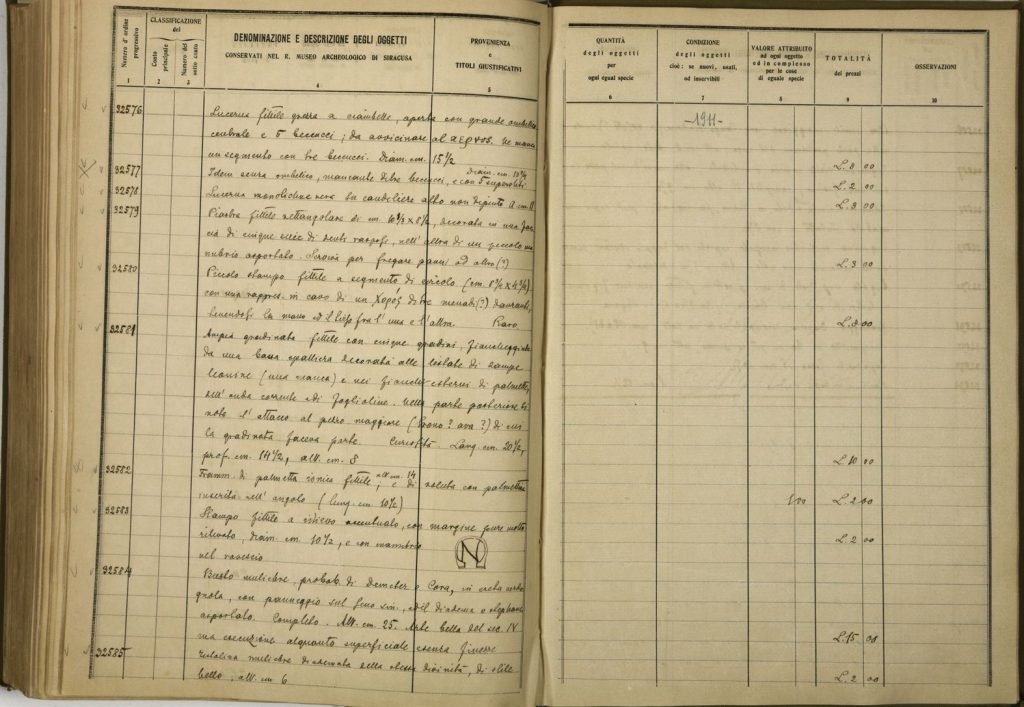 Numero d'ordine progressivo
CLASSIFICAZIONE
del
Conto principale
Numero del sotto conto
DENOMINAZIONE E DESCRIZIONE DEGLI OGGETTI
CONSERVATI NEL R. MUSEO ARCHEOLOGICO DI SIRACUSA
PROVENIENZA
e
TITOLI GIUSTIFICATIVI
1 2 3 4 5
32576
Lucerna fittile grezza a ciambella, aperta con grande ombelico
centrale e 5 beccucci; da avvicinare al κερνος. Ne manca
un segmento con tre beccucci. Diam. cm. 15 1/2
32577
Idem senza ombelico, mancante di tre beccucci, e con 5 superstiti
Diam. cm.
32578
Lucerna monolicne nera su candeliere alto non dipinto
32579
Piastra fittile rettangolare di cm. x 8 1/2, decorata in una fac
cia di cinque di nell'altra di un piccolo ma
nubrio asportato. Serviva per fregare panni od altro (?)
32580
Piccolo stampo fittile a segmento di circolo (cm. 8 1/2 x 4 )
con una rappres. in cavo di un χορός di tre menadi (?) danzanti,
tenendosi la mano fra l'una e l'altra. Raro.
32581
Ampia gradinata fittile con cinque gradini, fiancheggiata
da una bassa spalliera decorata alle testate di zampe
leonine (una manca) e nei fianchi esterni di palmette
sull'onda corrente e di foglioline. Nella parte posteriore si
nota l'attacco al pezzo maggiore (trono? ara?) di cui
la gradinata faceva parte. Curiosità. Lung. cm. 20 1/2,
prof. cm. 14 1/2, alt. cm. 8
32582
Framm. di palmetta ionica fittile, alt. cm. 14 e di voluta con palmetta
inserita nell'angolo (lung. cm. 10 1/2)
32583
Stampo fittile a accentuato, con margine pure molto
rilevato, diam. cm. 10 1/2, e con manubrio
nel rovescio
N
32584
Busto muliebre, probab. di Demeter o Cora, in creta verdo
gnola, con panneggio sul seno sin., e del diadema o stephane
asportato. Completo. Alt. cm. 25. Arte bella del sec. IV
ma esecuzione alquanto superficiale senza finezze
32585
Testolina muliebre diademata della stessa divinità, di stile
bello, alt. cm 6
QUANTITÀ
degli oggetti
per
ogni egual specie
CONDIZIONE
degli oggetti
cioè: se nuovi, usati,
od inservibili
VALORE ATTRIBUITO
ad ogni oggetto
ed in complesso
per le cose
di eguale specie
TOTALITÀ
dei prezzi
OSSERVAZIONI
6 7 8 9 10
-1911-
L. 3 00
L. 2 00
L. 3 00
L. 3 00
L. 3 00
L. 10 00
L. 2 00
L. 2 00
L. 15 00
L. 2 00